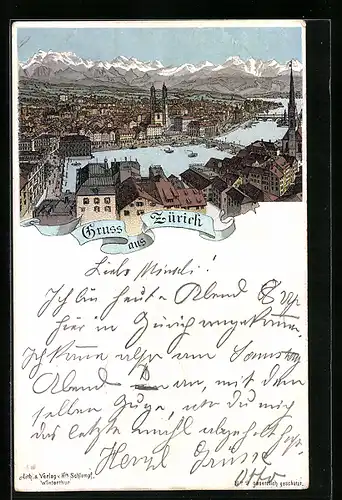 Gruss
aus
Zürich
Liebs Mineli!
Ich bin heute Abend 8
hier in Zürich angekommen.
Ich komme also am Samstag
Abend an, mit dem
selben Zuge, wo du mich
das letzte mal abgeholt hast.
Herzl Grüsse
Otto
Lith. & Verlag v. Hch Schlumpf,
Winterthur
gesetzlich geschützt.